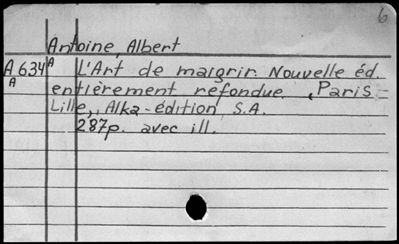 6
Antoine, Albert
A 634 A L'Art de maigrir. Nouvelle éd.
A entièrement refondue. , Paris -
Lille, Alka-édition S.A.
287p. avec ill.